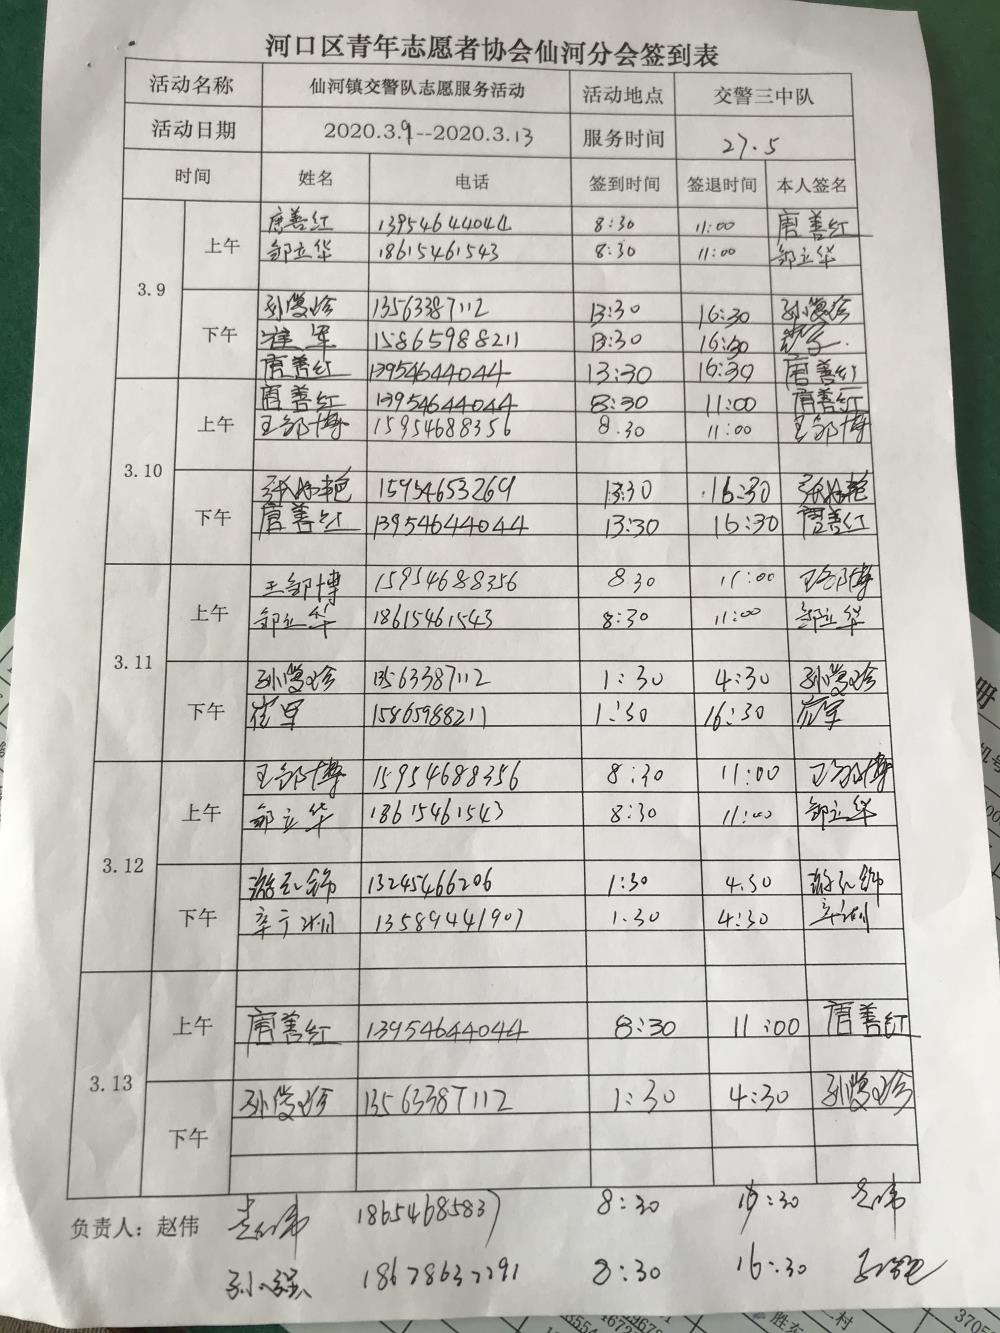 河口区青年志愿者协会仙河分会签到表
活动名称 仙河镇交警队志愿服务活动 活动地点 交警三中队
活动日期 2020.3.9--2020.3.13 服务时间 27.5
时间 姓名 电话 签到时间 签退时间 本人签名
3.9 上午 唐善红 13954644044 8:30 11:00 唐善红
邹立华 18615461543 8:30 11:00 邹立华
下午 孙俊珍 13563387112 13:30 16:30 孙俊珍
崔军 15865988211 13:30 16:30
唐善红 13954644044 13:30 16:30 唐善红
3.10 上午 唐善红 13954644044 8:30 11:00 唐善红
王邹博 15954688356 8.30 11:00 王邹博
下午 15954653269 13:30 16:30
唐善红 13954644044 13:30 16:30 唐善红
3.11 上午 王邹博 15954688356 8 30 11:00 王邹博
邹立华 18615461543 8:30 11:00 邹立华
下午 孙俊珍 13563387112 1:30 4:30 孙俊珍
崔军 15865988211 1:30 16:30 崔军
3.12 上午 王邹博 15954688356 8:30 11:00 王邹博
邹立华 18615461543 8:30 11:00 邹立华
下午 13245466206 1:30 4.30
13589441907 1.30 4:30
3.13 上午 唐善红 13954644044 8:30 11:00 唐善红
下午 孙俊珍 13563387112 1:30 4:30 孙俊珍
负责人：赵伟 赵伟 18654685837 8:30 16:30 赵伟
孙强 18678637291 8:30 16:30
册
机号
胜东
村
3705